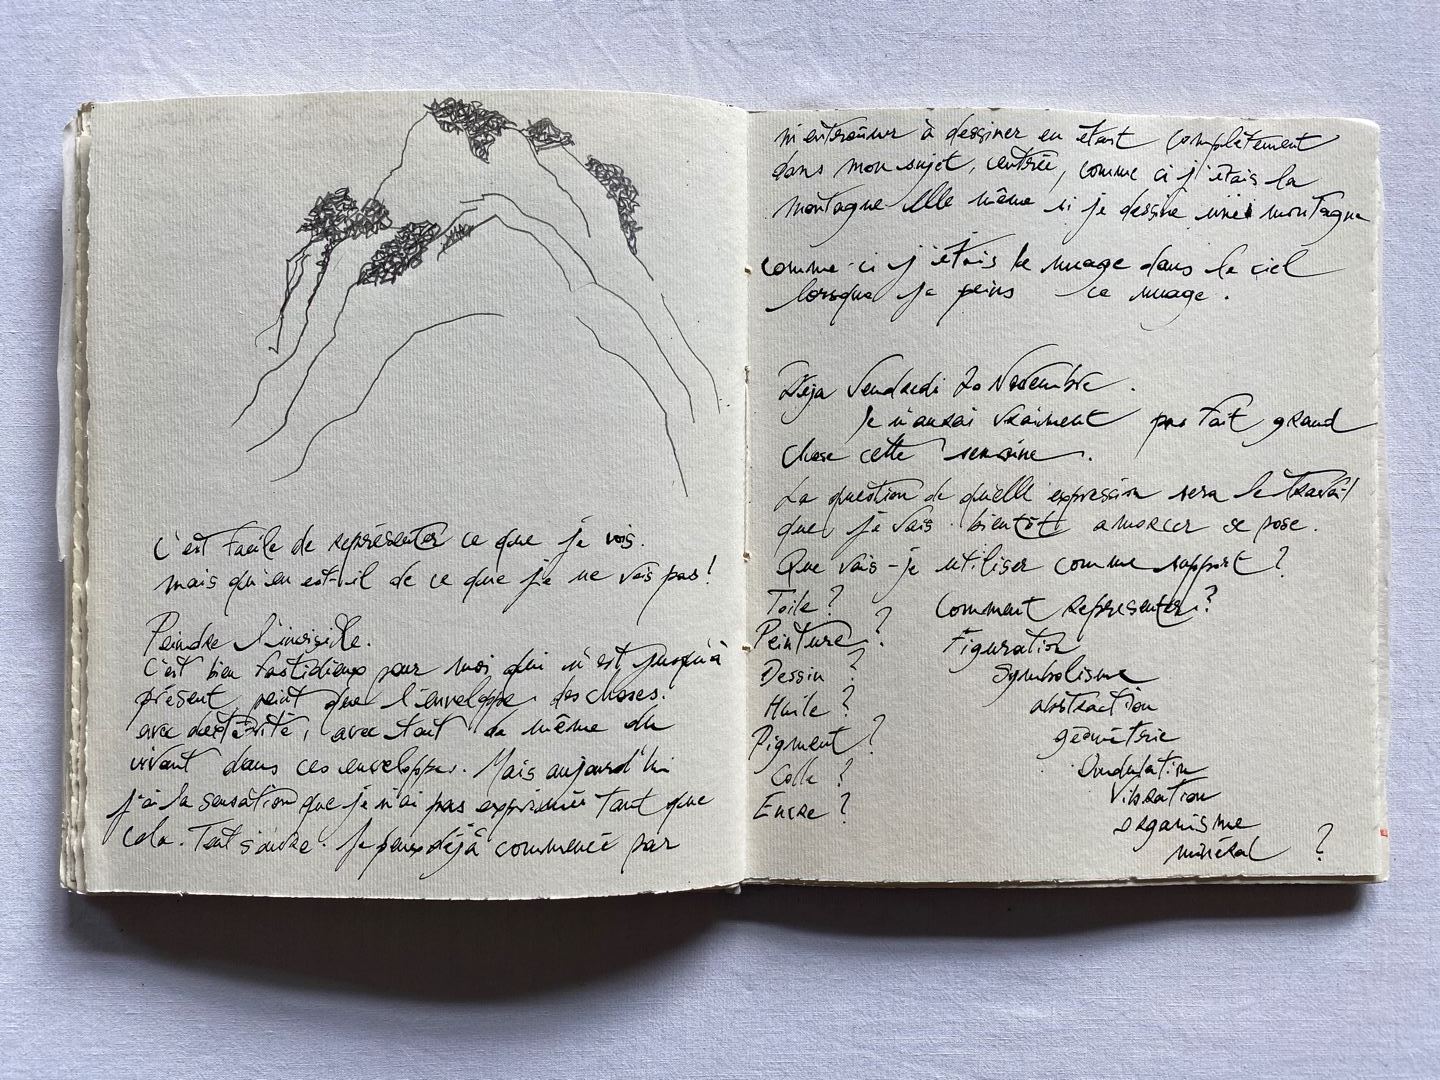 C'est facile de représenter ce que je vois.
mais qu'en est-il de ce que je ne vois pas!
Peindre l'invisible.
C'est bien fastidieux pour moi qui n'est jusqu'à
présent, peint que l'enveloppe des choses.
avec dextérité, avec tout de même du
vivant dans ces enveloppes. Mais aujourd'hui
j'ai la sensation que je n'ai pas exprimée tant que
cela. Tout s'ouvre. Je peux déjà commencé par
m'entraîner à dessiner en étant complètement
dans mon sujet, centrée, comme ci j'étais la
montagne elle même si je dessine une montagne
comme-ci j'étais le nuage dans le ciel
lorsque je peins ce nuage.
Déja Vendredi 20 Novembre.
Je n'aurai vraiment pas fait grand
chose cette semaine.
La question de quelle expression sera le travail
que je vais bientôt amorcer se pose.
Que vais-je utiliser comme support?
Toile? Comment représenter?
Peinture? Figuration
Dessin? Symbolisme
Huile? abstraction
Pigment? géométrie
Colle? Ondulation
Encre? Vibration
organisme
minéral ?